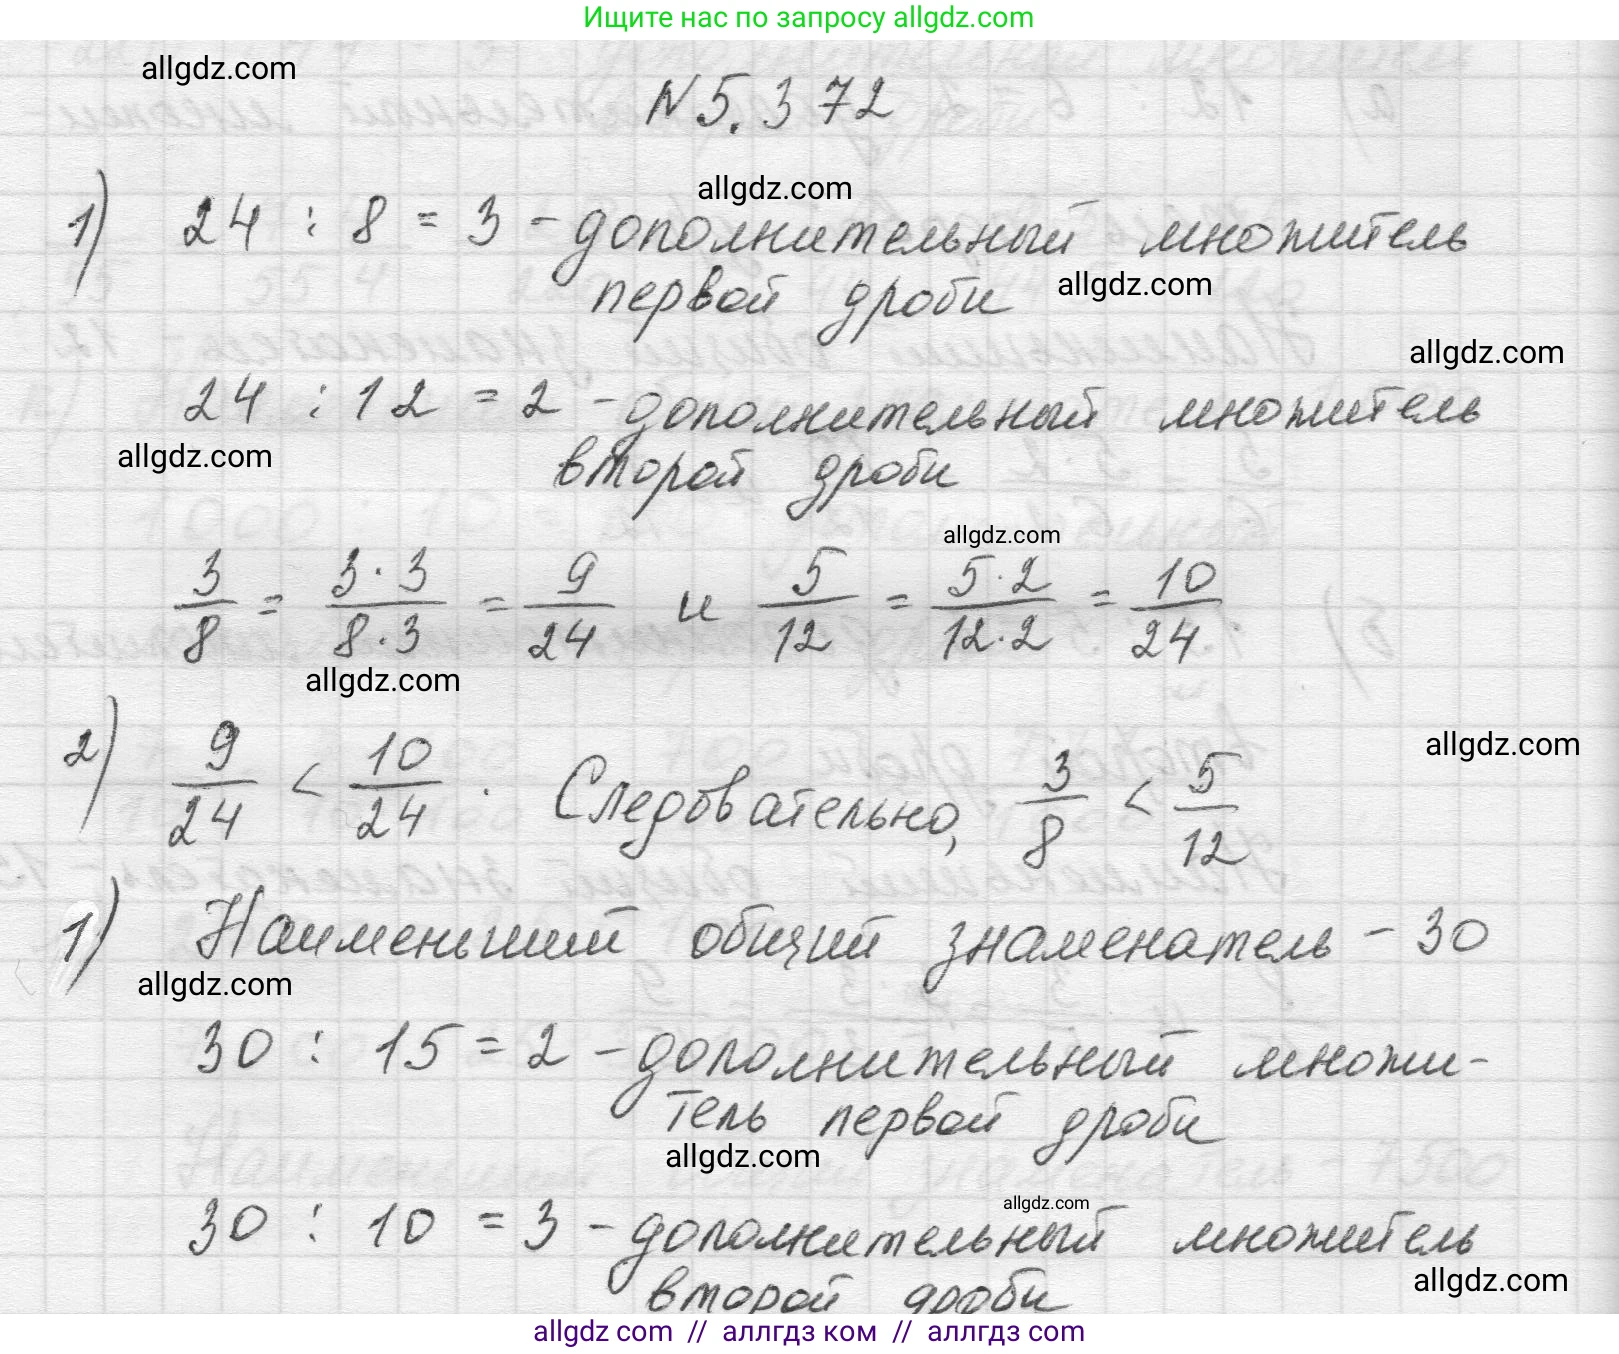 Ищите нас по запросу allgdz.com
allgdz.com
N 5.372
allgdz.com
1) 24 : 8 = 3 - дополнительный множитель
первой дроби
allgdz.com
allgdz.com
24 : 12 = 2 - дополнительный множитель
allgdz.com
второй дроби
allgdz.com
3/8 = 3·3/8·3 = 9/24 и 5/12 = 5·2/12·2 = 10/24.
allgdz.com
allgdz.com
2) 9/24 < 10/24. Следовательно, 3/8 < 5/12
1) Наименьший общий знаменатель - 30
allgdz.com
30 : 15 = 2 - дополнительный множи-
тель первой дроби
allgdz.com
allgdz.com
30 : 10 = 3 - дополнительный множитель
allgdz.com
второй дроби
allgdz com // аллгдз ком // аллгдз com